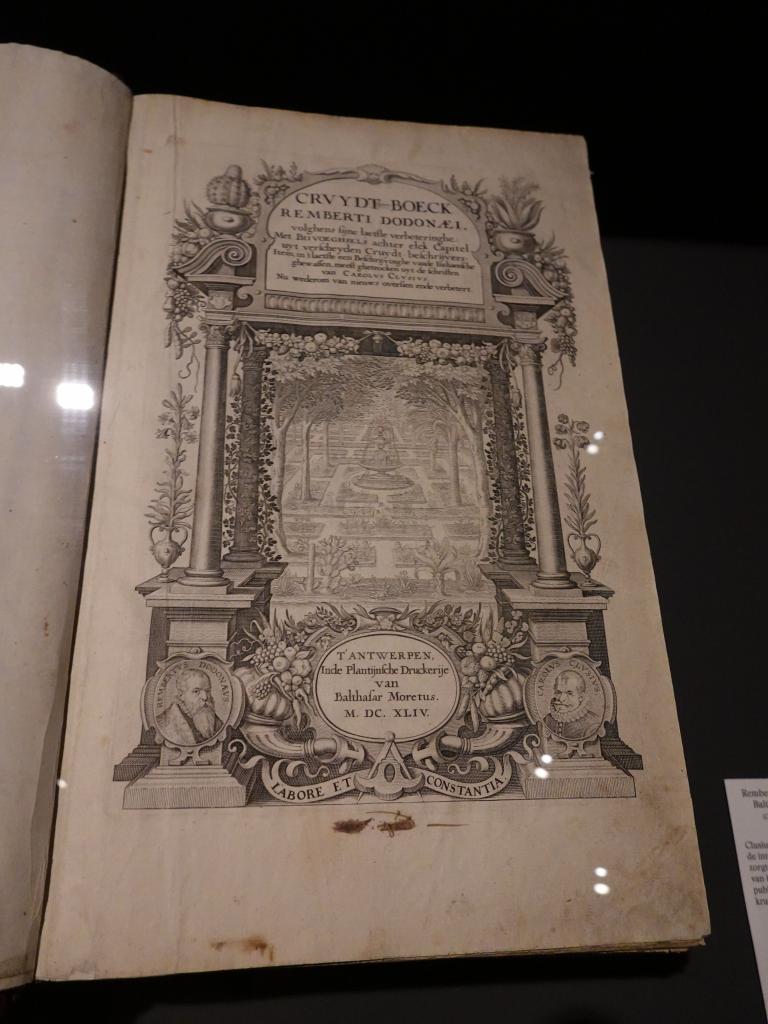 CRVYDT-BOECK
REMBERTI DODONÆI,
volghens sijne laetste verbeteringhe:
Met BIIVOEGHSELS achter elck Capitel,
uyt verscheyden Cruydt-beschrijvers:
Item, in 't laetste een Beschrijvinghe vande Indiaensche
ghewassen, meest ghetrocken uyt de schriften
van CAROLVS CLVSIVS.
Nu wederom van nieuws oversien ende verbetert.
T'ANTWERPEN,
Inde Plantijnsche Druckerije
van
Balthasar Moretus.
M. DC. XLIV.
REMBERTVS DODONÆVS
CAROLVS CLVSIVS
LABORE ET CONSTANTIA
Rembe
Balt
Clusiu
de in
zorgt
van
pub
kru